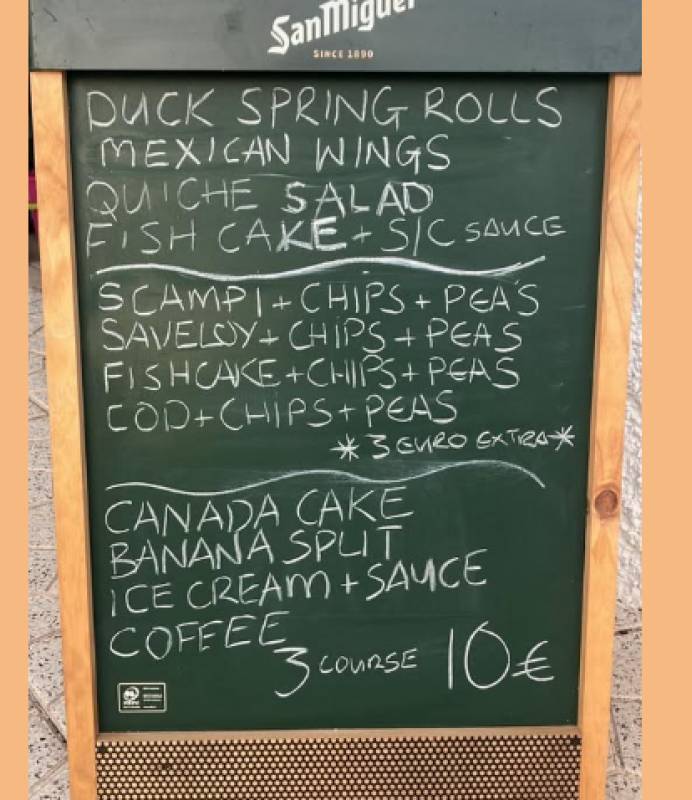 SanMiguel
SINCE 1890
DUCK SPRING ROLLS
MEXICAN WINGS
QUICHE SALAD
FISH CAKE + S/C SAUCE
SCAMPI + CHIPS + PEA'S
SAVELOY + CHIPS + PEAS
FISHCAKE + CHIPS + PEAS
COD + CHIPS + PEAS
* 3 EURO EXTRA *
CANADA CAKE
BANANA SPLIT
ICE CREAM + SAUCE
COFFEE
3 COURSE 10€